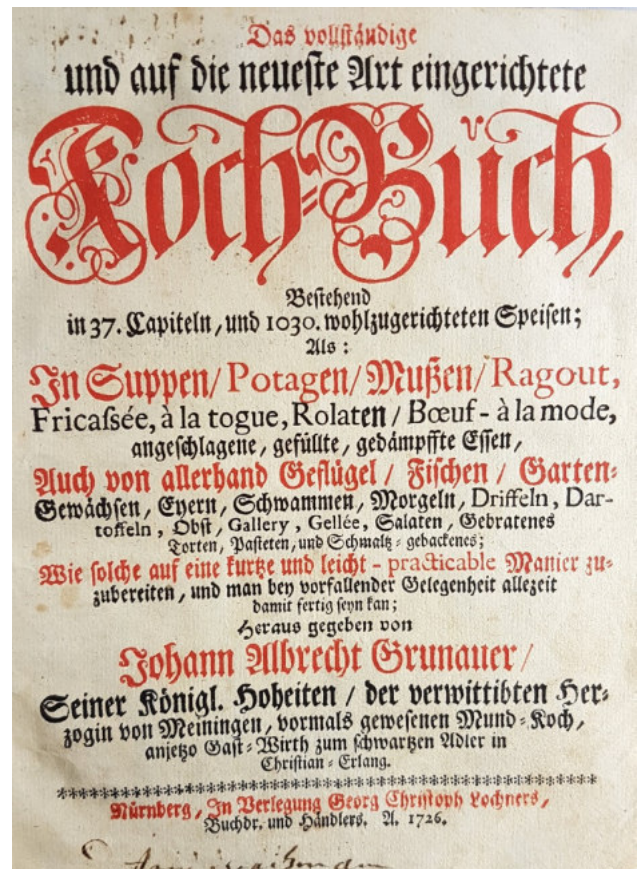 Das vollständige
und auf die neueste Art eingerichtete
Koch-Buch,
Bestehend
in 37. Capiteln, und 1030. wohlzugerichteten Speisen;
Als:
In Suppen/ Potagen/ Mußen/ Ragout,
Fricassée, à la togue, Rolaten / Bœuf- à la mode,
angeschlagene, gefüllte, gedämpffte Essen,
Auch von allerhand Geflügel / Fischen / Garten-
Gewächsen, Eyern, Schwammen, Morgeln, Driffeln, Dar-
toffeln, Obst, Gallery, Gellée, Salaten, Gebratenes
Torten, Pasteten, und Schmaltz-gebackenes;
Wie solche auf eine kurtze und leicht-practicable Manier zu-
zubereiten, und man bey vorfallender Gelegenheit allezeit
damit fertig seyn kan;
Heraus gegeben von
Johann Albrecht Grunauer/
Seiner Königl. Hoheiten / der verwittibten Her-
zogin von Meiningen, vormals gewesenen Mund-Koch,
anjetzo Gast-Wirth zum schwartzen Adler in
Christian-Erlang.
Nürnberg, In Verlegung Georg Christoph Lochners,
Buchdr. und Händlers. A. 1726.